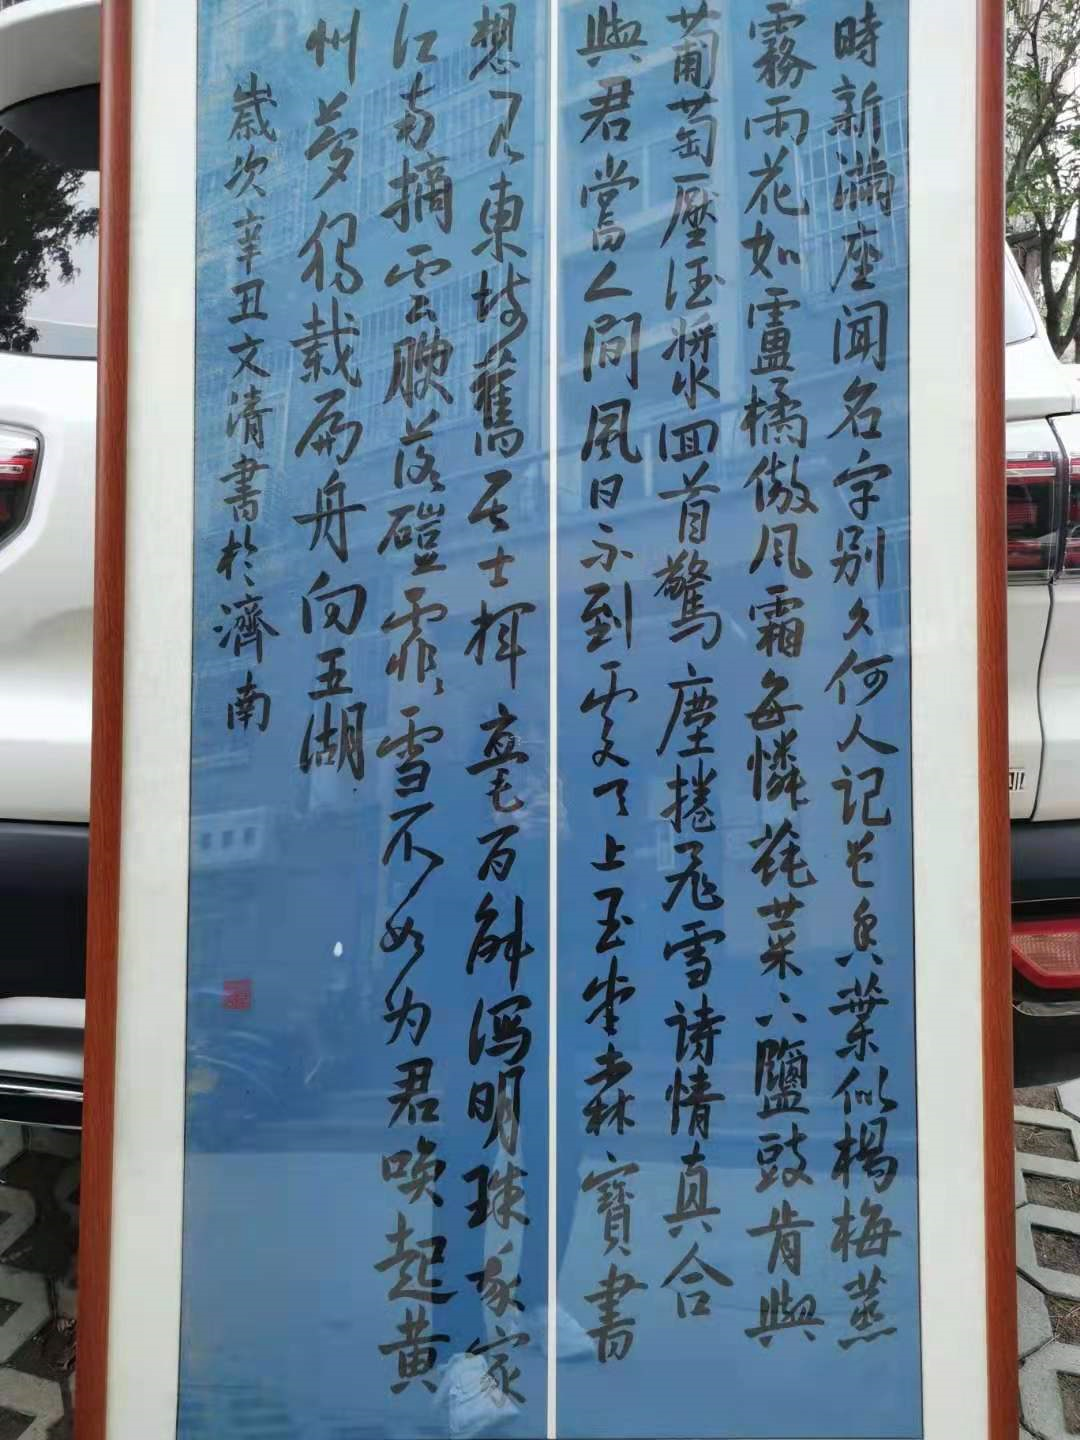 時新滿座闻名字别久何人记色香葉似楊梅蒸
霧雨花如盧橘傲风霜每憐蒓菜下鹽豉肯與
葡萄壓酒漿回首驚塵捲飛雪诗情真合
與君嘗人間风日不到處天上玉堂森寶書
想见東坡舊居士揮毫百斛瀉明珠我家
江南摘雲腴落磑霏霏雪不如为君唤起黄
州夢獨载扁舟向五湖
歲次辛丑文清書於濟南